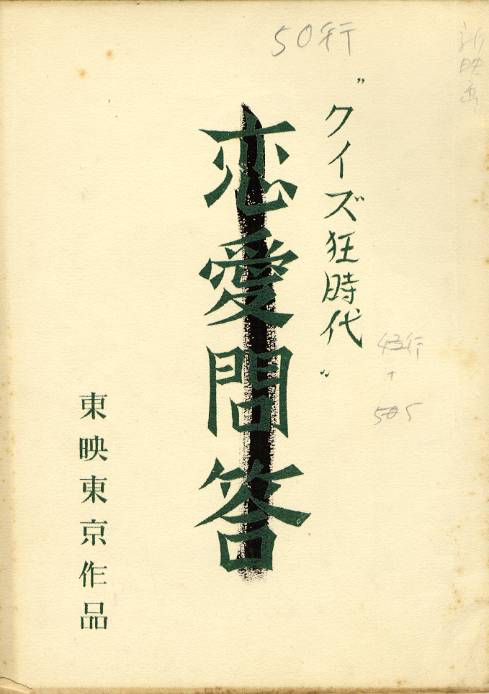 50行
新映画
"クイズ狂時代"
恋愛問答
43行
+
505
東映東京作品